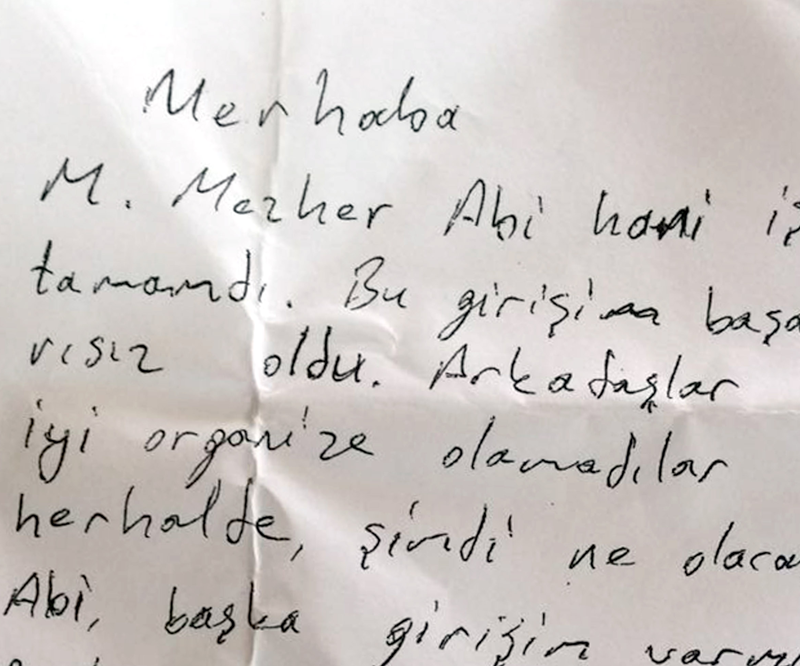 Merhaba
M. Mezher Abi hani iş
tamamdı. Bu girişim başa
rısız oldu. Arkadaşlar
iyi organize olamadılar
herhalde, şimdi ne olaca
Abi, başka girişim varm